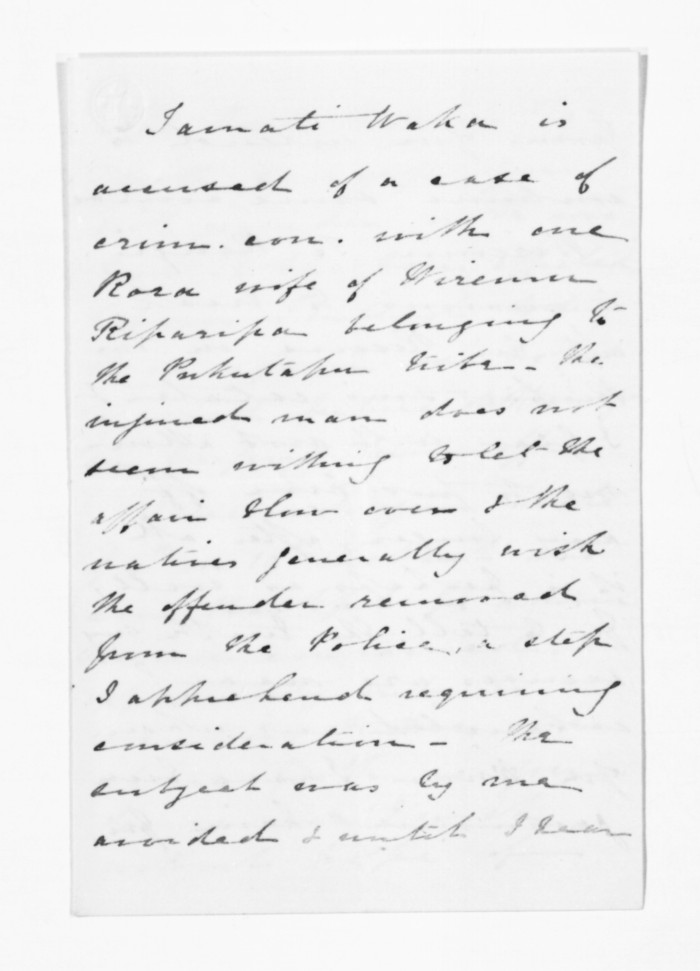 Tamati Waka is
accused of a case of
crim. con. with one
Rora wife of Wiremu
Riparipa belonging to
the Pukutapu tribe - the
injured man does not
seem willing to let the
affair blow over & the
natives generally wish
the offender removed
from the Police, a step
I apprehend requiring
consideration - The
subject was by me
avoided & until I hear